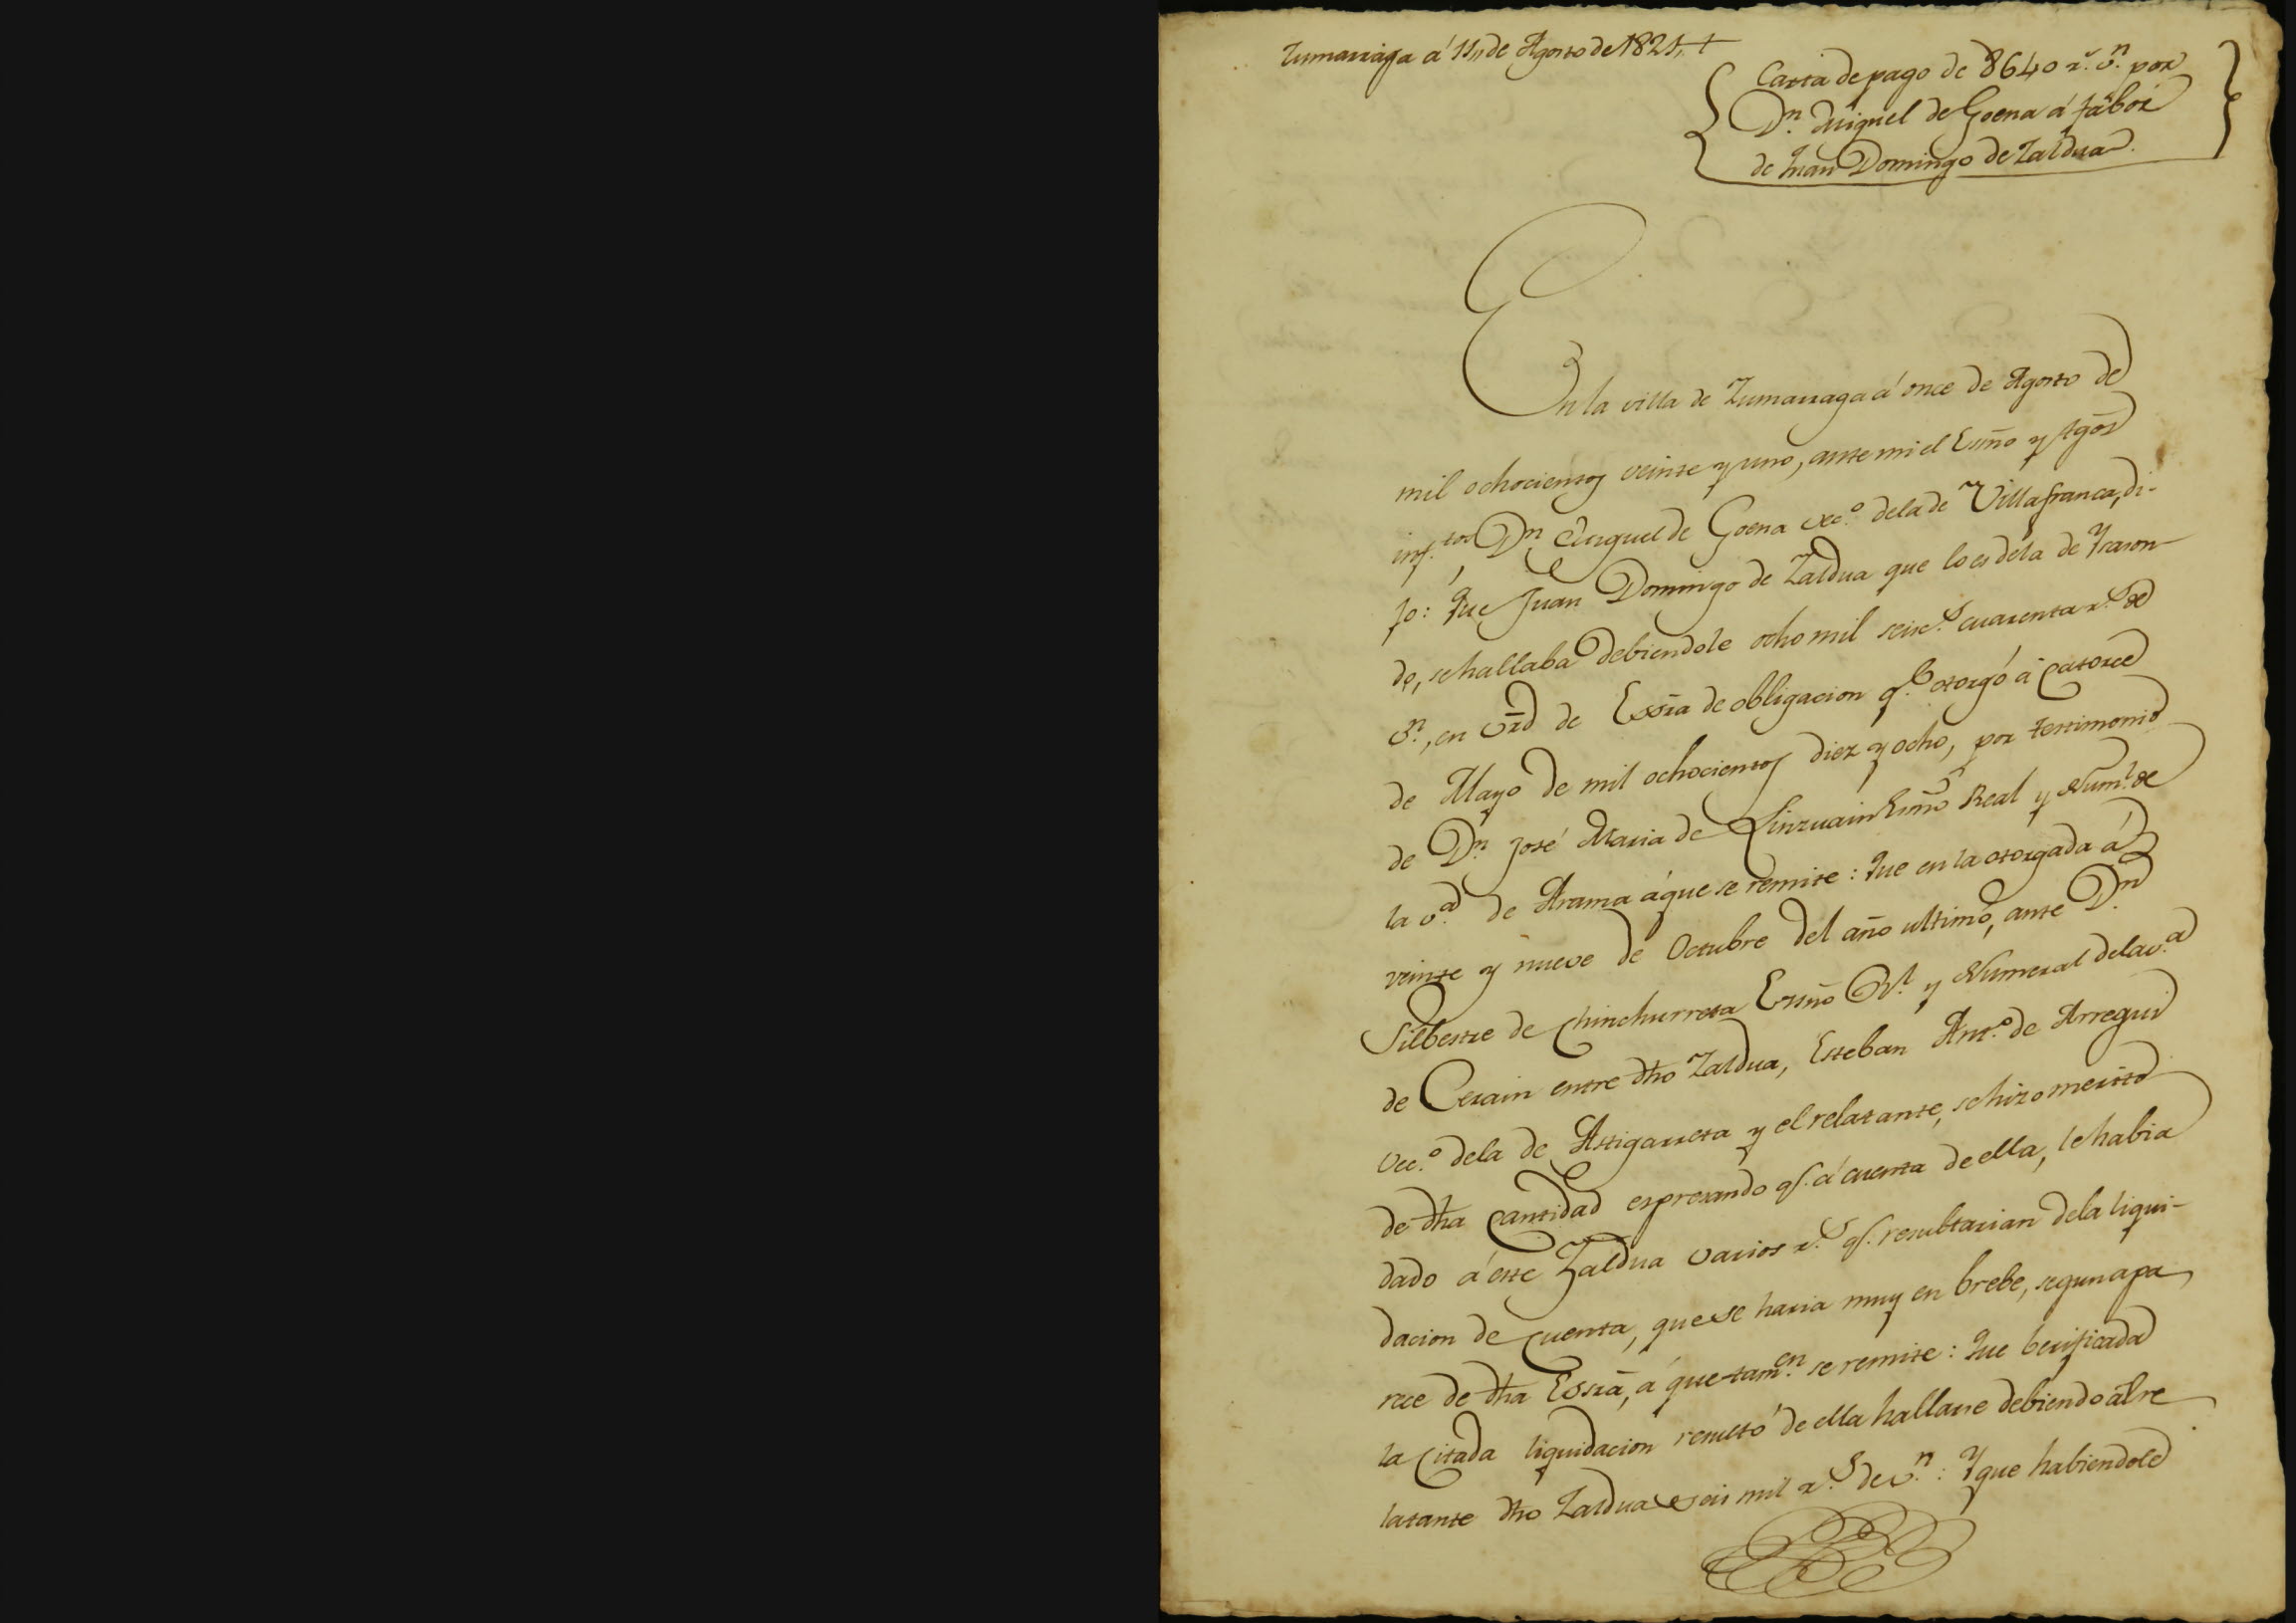 Zumarraga á 11,, de Agosto de 1821,, +
Carta de pago de 8640 r.s v.n por
D.n Miguel de Goena á fabor
de Juan Domingo de Zaldua.
En la villa de Zumarraga á once de Agosto de
mil ochocientos veinte y uno, ante mi el Essño y tgõs
inf.tos D.n Miguel de Goena vec.º dela de Villafranca, di-
jo: Que Juan Domingo de Zaldua que lo es dela de Ycazon-
do, se hallaba debiendole ocho mil seisc.s cuarenta r.s de
v.n, en vrd de Essra de obligacion q.e otorgó á catorce
de Mayo de mil ochocientos diez y ocho, por testimonio
de D.n José Maria de Linzuain Essño Real y Num.l de
la v.a de Arama á que se remite: Que en la otorgada á
veinte y nueve de Octubre del año ultimo, ante D.n
Silbestre de Chinchurreta Essño R.l y Numeral dela v.a
de Cerain entre dho Zaldua, Esteban Ant.º de Arregui
vec.º dela de Astigarreta y el relatante, se hizo merito
de dha cantidad espresando q.e á cuenta de ella, le habia
dado á este Zaldua varios r.s q.e resultarian dela liqui-
dacion de cuenta, que se haria muy en brebe, segun apa
rece de dha Essra, á que tam.en se remite: Que berificada
la citada liquidacion resultó de ella hallarse debiendo al re
latante dho Zaldua seis mil r.s de v.n: Y que habiendole